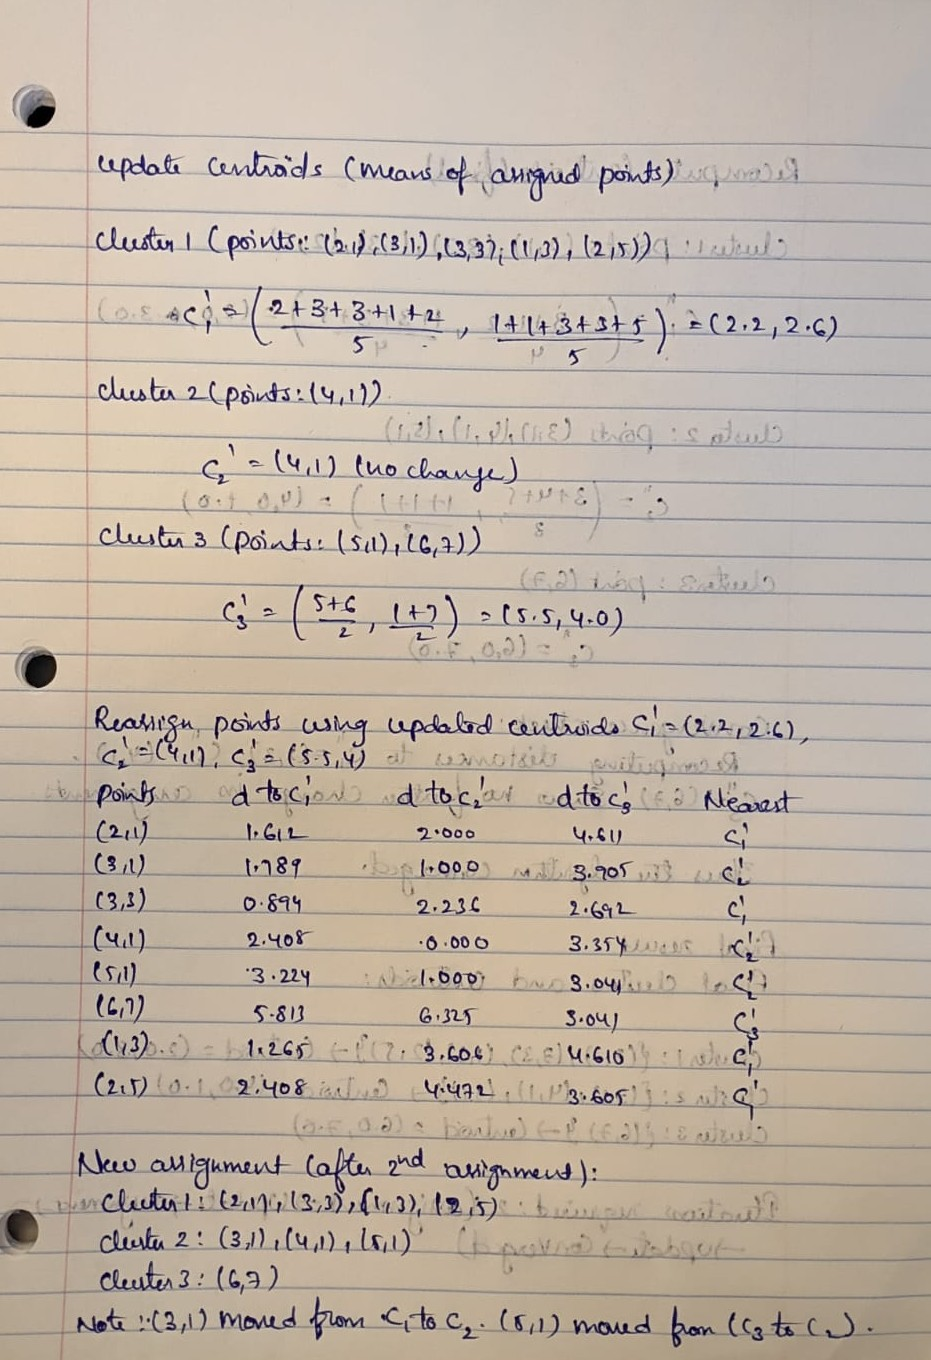 update centroids (means of assigned points)
cluster 1 (points: (2,1), (3,1), (3,3), (1,3), (2,5))
C₁' = (2+3+3+1+2/5, 1+1+3+3+5/5) = (2.2, 2.6)
cluster 2 (points: (4,1))
C₂' = (4,1) (no change)
cluster 3 (points: (5,1), (6,7))
C₃' = (5+6/2, 1+7/2) = (5.5, 4.0)
Reassign points using updated centroids C₁' = (2.2, 2.6),
C₂' = (4,1), C₃' = (5.5, 4)
points d to C₁' d to C₂' d to C₃' Nearest
(2,1) 1.612 2.000 4.611 C₁'
(3,1) 1.789 1.000 3.905 C₂'
(3,3) 0.894 2.236 2.692 C₁'
(4,1) 2.408 0.000 3.354 C₂'
(5,1) 3.224 1.000 3.041 C₂'
(6,7) 5.813 6.325 3.041 C₃'
(1,3) 1.265 3.606 4.610 C₁'
(2,5) 2.408 4.472 3.605 C₁'
New assignment (after 2nd assignment):
Cluster 1: (2,1), (3,3), (1,3), (2,5)
cluster 2: (3,1), (4,1), (5,1)
cluster 3: (6,7)
Note: (3,1) moved from C₁ to C₂. (5,1) moved from (C₃ to C₂).